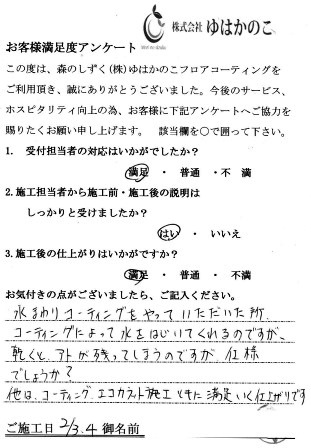 株式会社 ゆはかのこ
お客様満足度アンケート
この度は、森のしずく(株)ゆはかのこフロアコーティングを
ご利用頂き、誠にありがとうございました。今後のサービス、
ホスピタリティ向上の為、お客様に下記アンケートへご協力を
賜りたくお願い申し上げます。 該当欄を〇で囲って下さい。
1. 受付担当者の対応はいかがでしたか?
満足 ・ 普通 ・不 満
2.施工担当者から施工前・施工後の説明は
しっかりと受けましたか?
はい ・ いいえ
3.施工後の仕上がりはいかがですか?
満足 ・ 普通 ・ 不満
お気付きの点がございましたら、ご記入ください。
水まわりコーティングをやっていただいた所、
コーティングによって水をはじいてくれるのですが、
乾くと、アトが残ってしまうのですが、仕様
でしょうか?
他は、コーティング、エコカラット施工ともに満足いく仕上がりです
ご施工日 2/3.4 御名前